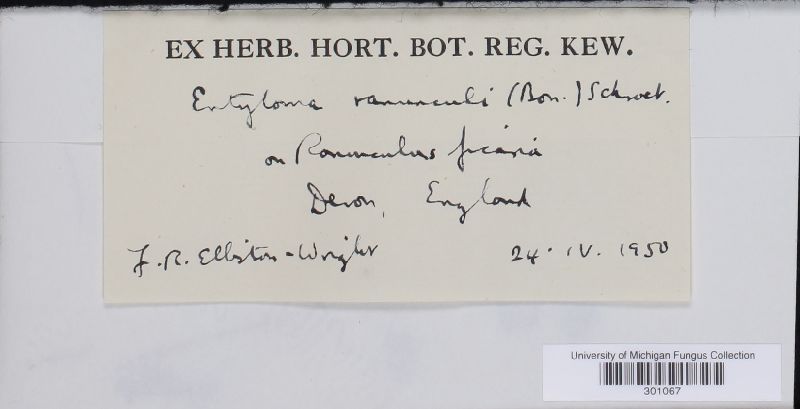 EX HERB. HORT. BOT. REG. KEW.
Entyloma ranunculi (Bon.) Schroet.
on Ranunculus ficaria
Devon, England
F. R. Elliston-Wright 24. IV. 1950
University of Michigan Fungus Collection
301067